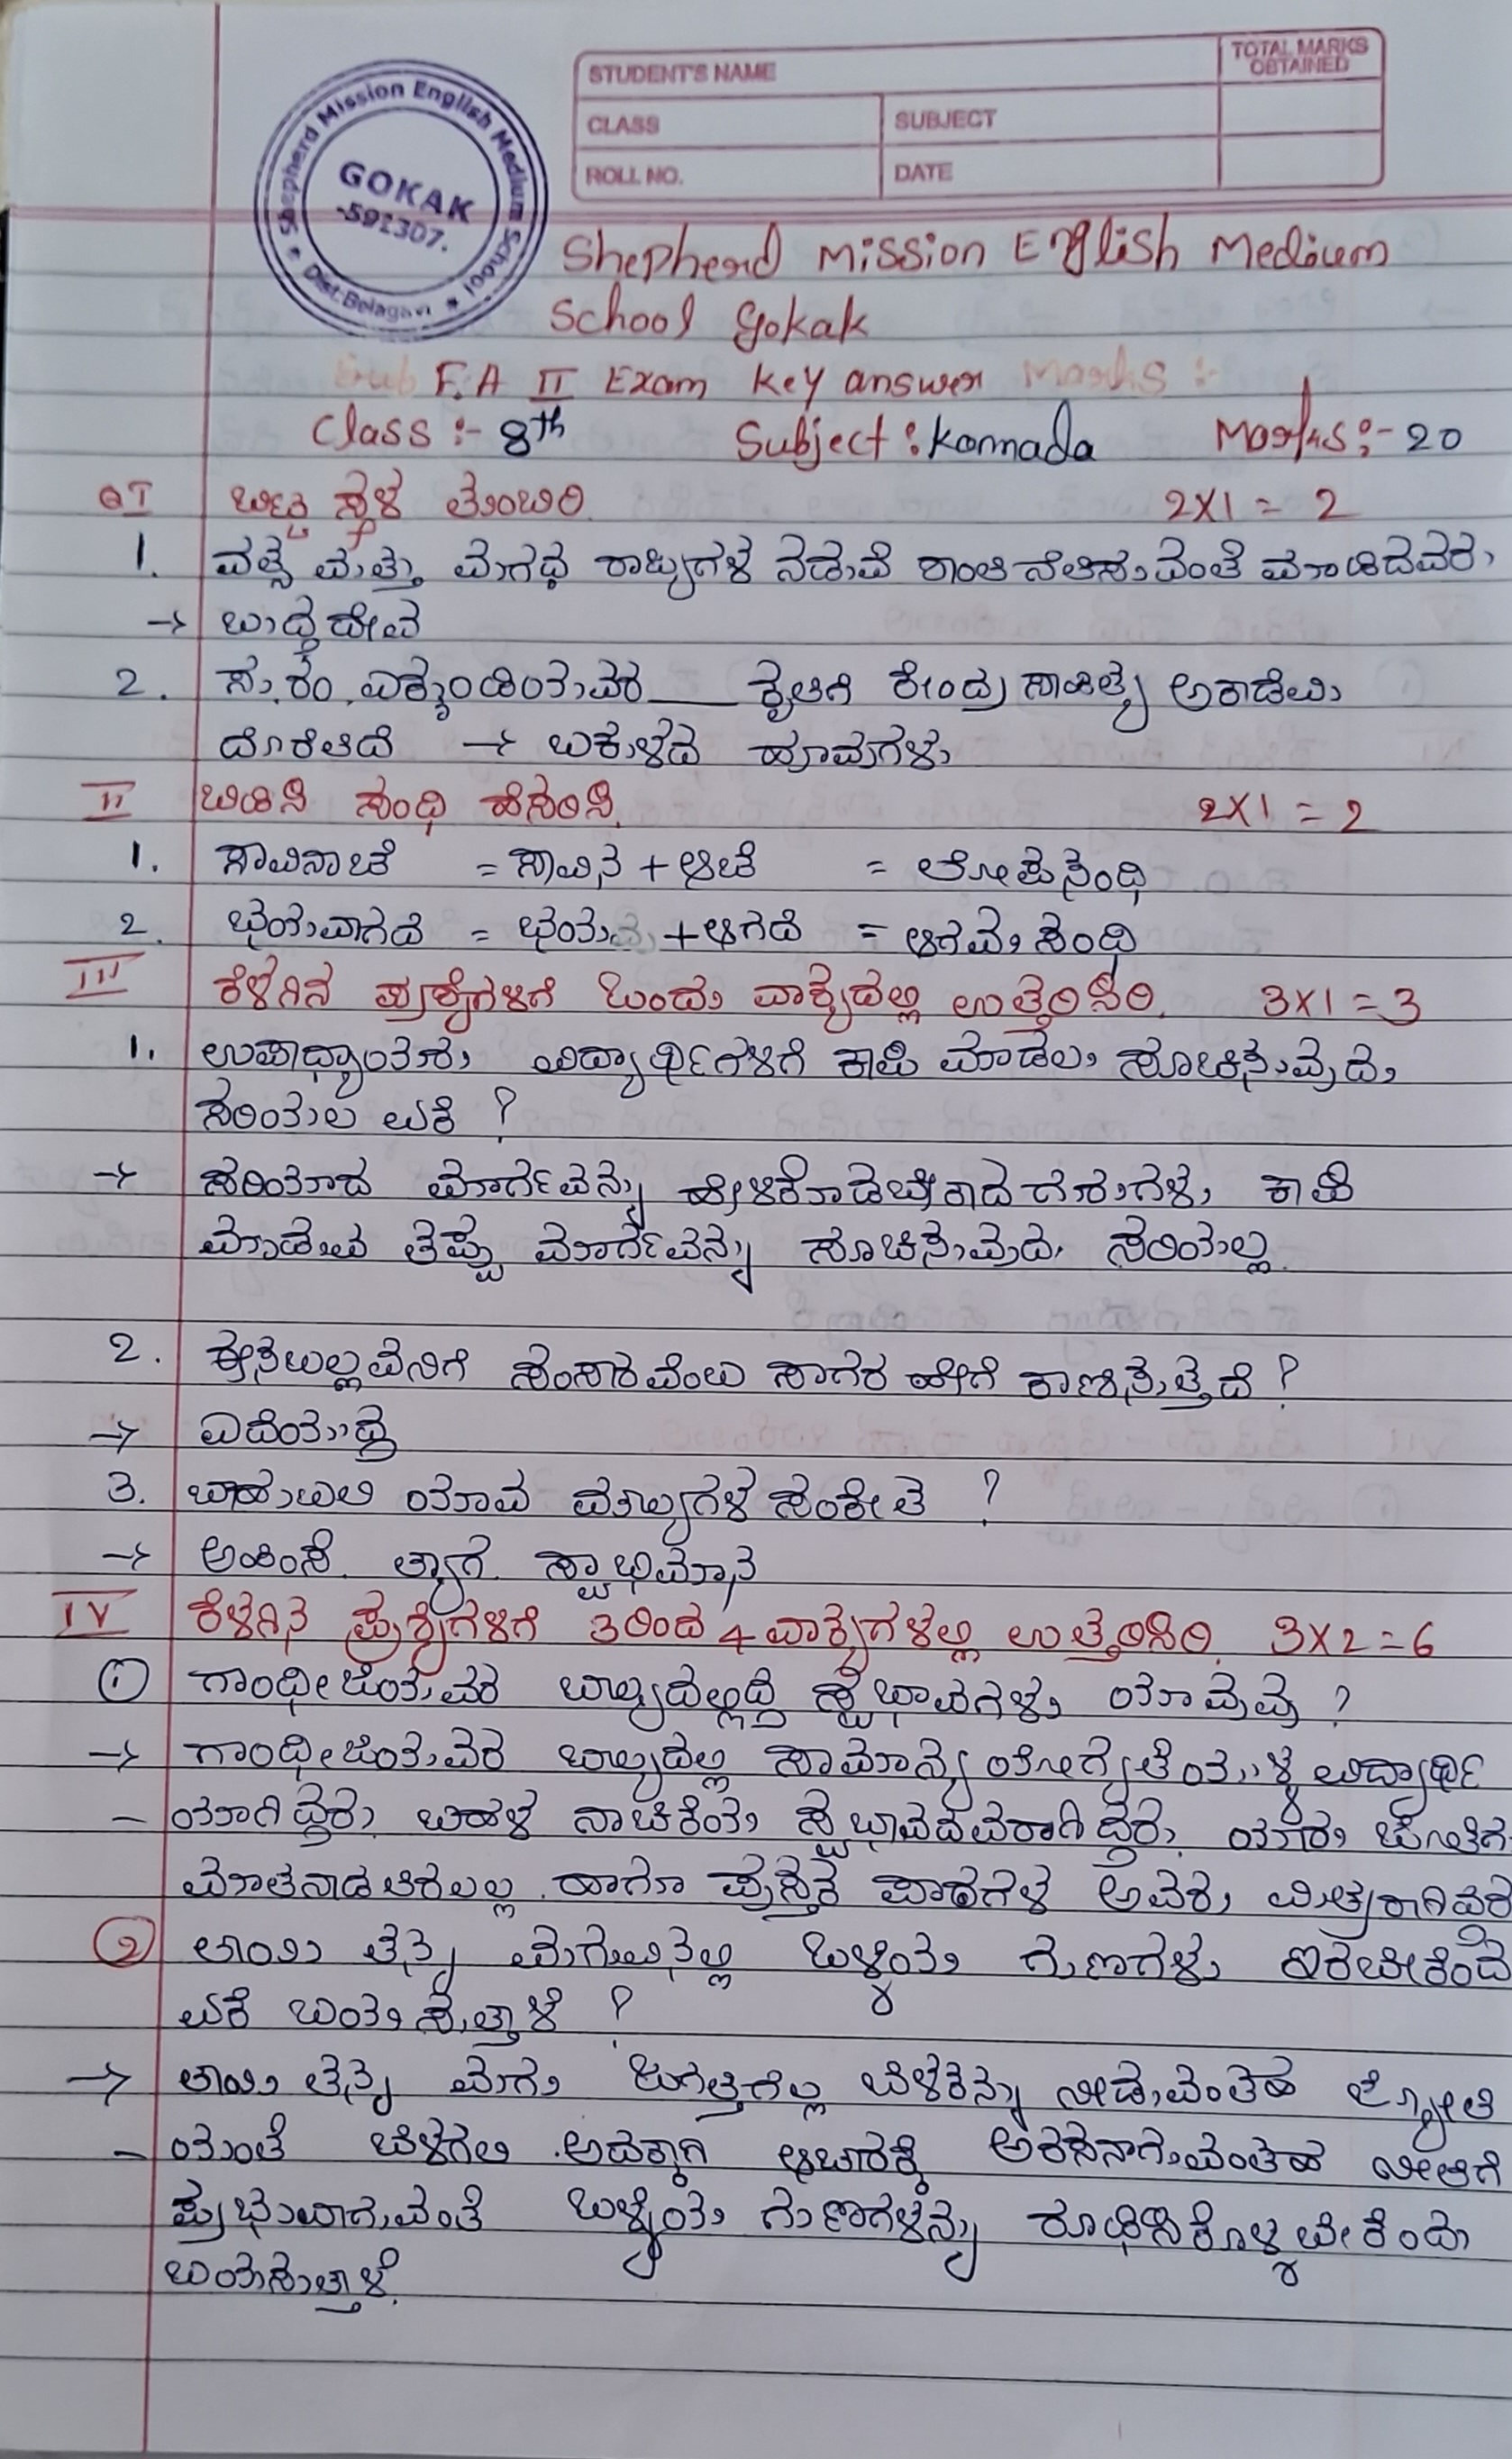 Shepherd Mission English Medium School
GOKAK
-591307.
Dist:Belagavi
STUDENT'S NAME
TOTAL MARKS OBTAINED
CLASS
SUBJECT
ROLL NO.
DATE
Shepherd Mission English Medium
School Gokak
F.A II Exam Key answer Marks :-
Class :- 8th Subject : Kannada Marks :- 20
QI ಬಿಟ್ಟ ಸ್ಥಳ ತುಂಬಿರಿ. 2X1 = 2
1. ವತ್ಸ ಮತ್ತು ಮಗಧ ರಾಜ್ಯಗಳ ನಡುವೆ ಶಾಂತಿ ನೆಲಿಸುವಂತೆ ಮಾಡಿದವರು
→ ಬುದ್ಧದೇವ
2. ಸು.ರಂ.ಎಕ್ಕುಂಡಿಯವರ ___ ಕೃತಿಗೆ ಕೇಂದ್ರ ಸಾಹಿತ್ಯ ಅಕಾಡೆಮಿ
ದೊರೆತಿದೆ → ಬಕುಳದ ಹೂವುಗಳು
II ಬಿಡಿಸಿ ಸಂಧಿ ಹೆಸರಿಸಿ. 2X1 = 2
1. ಸಾವಿನಾಚೆ = ಸಾವಿನ + ಆಚೆ = ಲೋಪಸಂಧಿ
2. ಭಯವಾಗದೆ = ಭಯವು + ಆಗದೆ = ಆಗಮ ಸಂಧಿ
III ಕೆಳಗಿನ ಪ್ರಶ್ನೆಗಳಿಗೆ ಒಂದು ವಾಕ್ಯದಲ್ಲಿ ಉತ್ತರಿಸಿರಿ. 3X1 = 3
1. ಉಪಾಧ್ಯಾಯರು ವಿದ್ಯಾರ್ಥಿಗಳಿಗೆ ಕಾಪಿ ಮಾಡಲು ಸೂಚಿಸುವುದು
ಸರಿಯಲ್ಲ ಏಕೆ ?
→ ಸರಿಯಾದ ಮಾರ್ಗವನ್ನು ಹೇಳಿಕೊಡಬೇಕಾದ ಗುರುಗಳು ಕಾಪಿ
ಮಾಡುವ ತಪ್ಪು ಮಾರ್ಗವನ್ನು ಸೂಚಿಸುವುದು ಸರಿಯಲ್ಲ.
2. ಈಸಬಲ್ಲವನಿಗೆ ಸಂಸಾರವೆಂಬ ಸಾಗರ ಹೇಗೆ ಕಾಣಿಸುತ್ತದೆ ?
→ ಎದೆಯುದ್ದ
3. ಬಾಹುಬಲಿ ಯಾವ ಮೌಲ್ಯಗಳ ಸಂಕೇತ ?
→ ಅಹಿಂಸೆ. ತ್ಯಾಗ. ಸ್ವಾಭಿಮಾನ
IV ಕೆಳಗಿನ ಪ್ರಶ್ನೆಗಳಿಗೆ 3ರಿಂದ 4 ವಾಕ್ಯಗಳಲ್ಲಿ ಉತ್ತರಿಸಿರಿ. 3X2 = 6
1 ಗಾಂಧೀಜಿಯವರ ಬಾಲ್ಯದಲ್ಲಿದ್ದ ಸ್ವಭಾವಗಳು ಯಾವುವು ?
→ ಗಾಂಧೀಜಿಯವರ ಬಾಲ್ಯದಲ್ಲಿ ಸಾಮಾನ್ಯ ಯೋಗ್ಯತೆಯುಳ್ಳ ವಿದ್ಯಾರ್ಥಿ
- ಯಾಗಿದ್ದರು ಬಹಳ ನಾಚಿಕೆಯ ಸ್ವಭಾವದವರಾಗಿದ್ದರು ಯಾರ ಜೋತೆಗೆ
ಮಾತನಾಡತಿರಲಿಲ್ಲ. ಹಾಗೂ ಪುಸ್ತಕ ಪಾಠಗಳೆ ಅವರ ಮಿತ್ರರಾಗಿದ್ದರು
2 ತಾಯಿ ತನ್ನ ಮಗುವಿನಲ್ಲಿ ಒಳ್ಳೆಯ ಗುಣಗಳು ಇರಬೇಕೆಂದು
ಏಕೆ ಬಯಸುತ್ತಾಳೆ ?
→ ತಾಯಿ ತನ್ನ ಮಗು ಜಗತ್ತಿಗೆಲ್ಲ ಬೆಳಕನ್ನು ನೀಡುವಂತಹ ಜ್ಯೋತಿ
- ಯಂತೆ ಬೆಳಗಲಿ. ಅದಕ್ಕಾಗಿ ಆಚಾರಕ್ಕೆ ಅರಸನಾಗುವಂತಹ ನೀತಿಗೆ
ಪ್ರಭುವಾಗುವಂತೆ ಒಳ್ಳೆಯ ಗುಣಗಳನ್ನು ರೂಢಿಸಿಕೊಳ್ಳಬೇಕೆಂದು
ಬಯಸುತ್ತಾಳೆ.